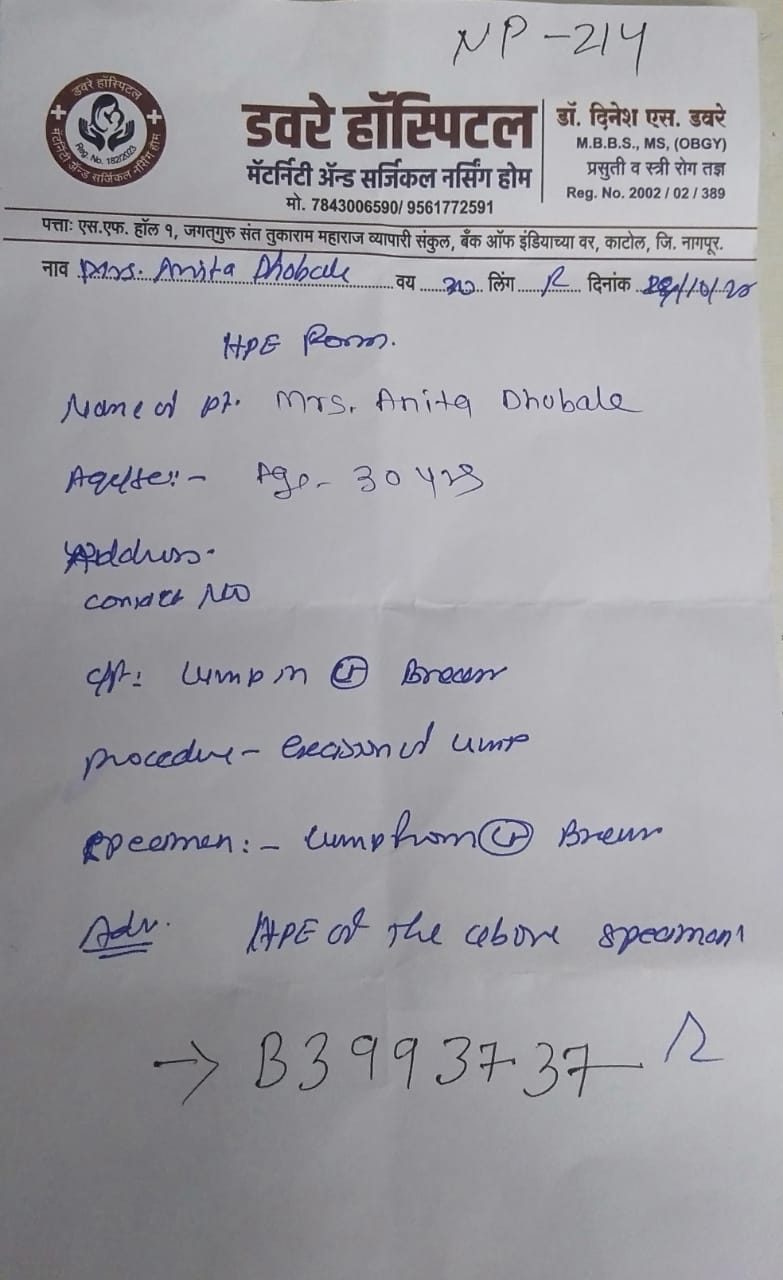 NP-214
डवरे हॉस्पिटल
मॅटर्निटी ॲन्ड सर्जिकल नर्सिंग होम
Reg. No. 182/2023
डवरे हॉस्पिटल
मॅटर्निटी ॲन्ड सर्जिकल नर्सिंग होम
मो. 7843006590/ 9561772591
डॉ. दिनेश एस. डवरे
M.B.B.S., MS, (OBGY)
प्रसुती व स्त्री रोग तज्ञ
Reg. No. 2002 / 02 / 389
पत्ताः एस.एफ. हॉल १, जगतगुरु संत तुकाराम महाराज व्यापारी संकुल, बँक ऑफ इंडियाच्या वर, काटोल, जि. नागपूर.
नाव Mrs. Anita Dhobale वय 30 लिंग दिनांक
HPE Form.
Name of pt. Mrs. Anita Dhobale
Age - 30 yrs
Address.
contact No
lump in Breast
procedure - Excision of lump
specimen: - lump from Breast
Adv. HPE of the above specimen
→ B3993737